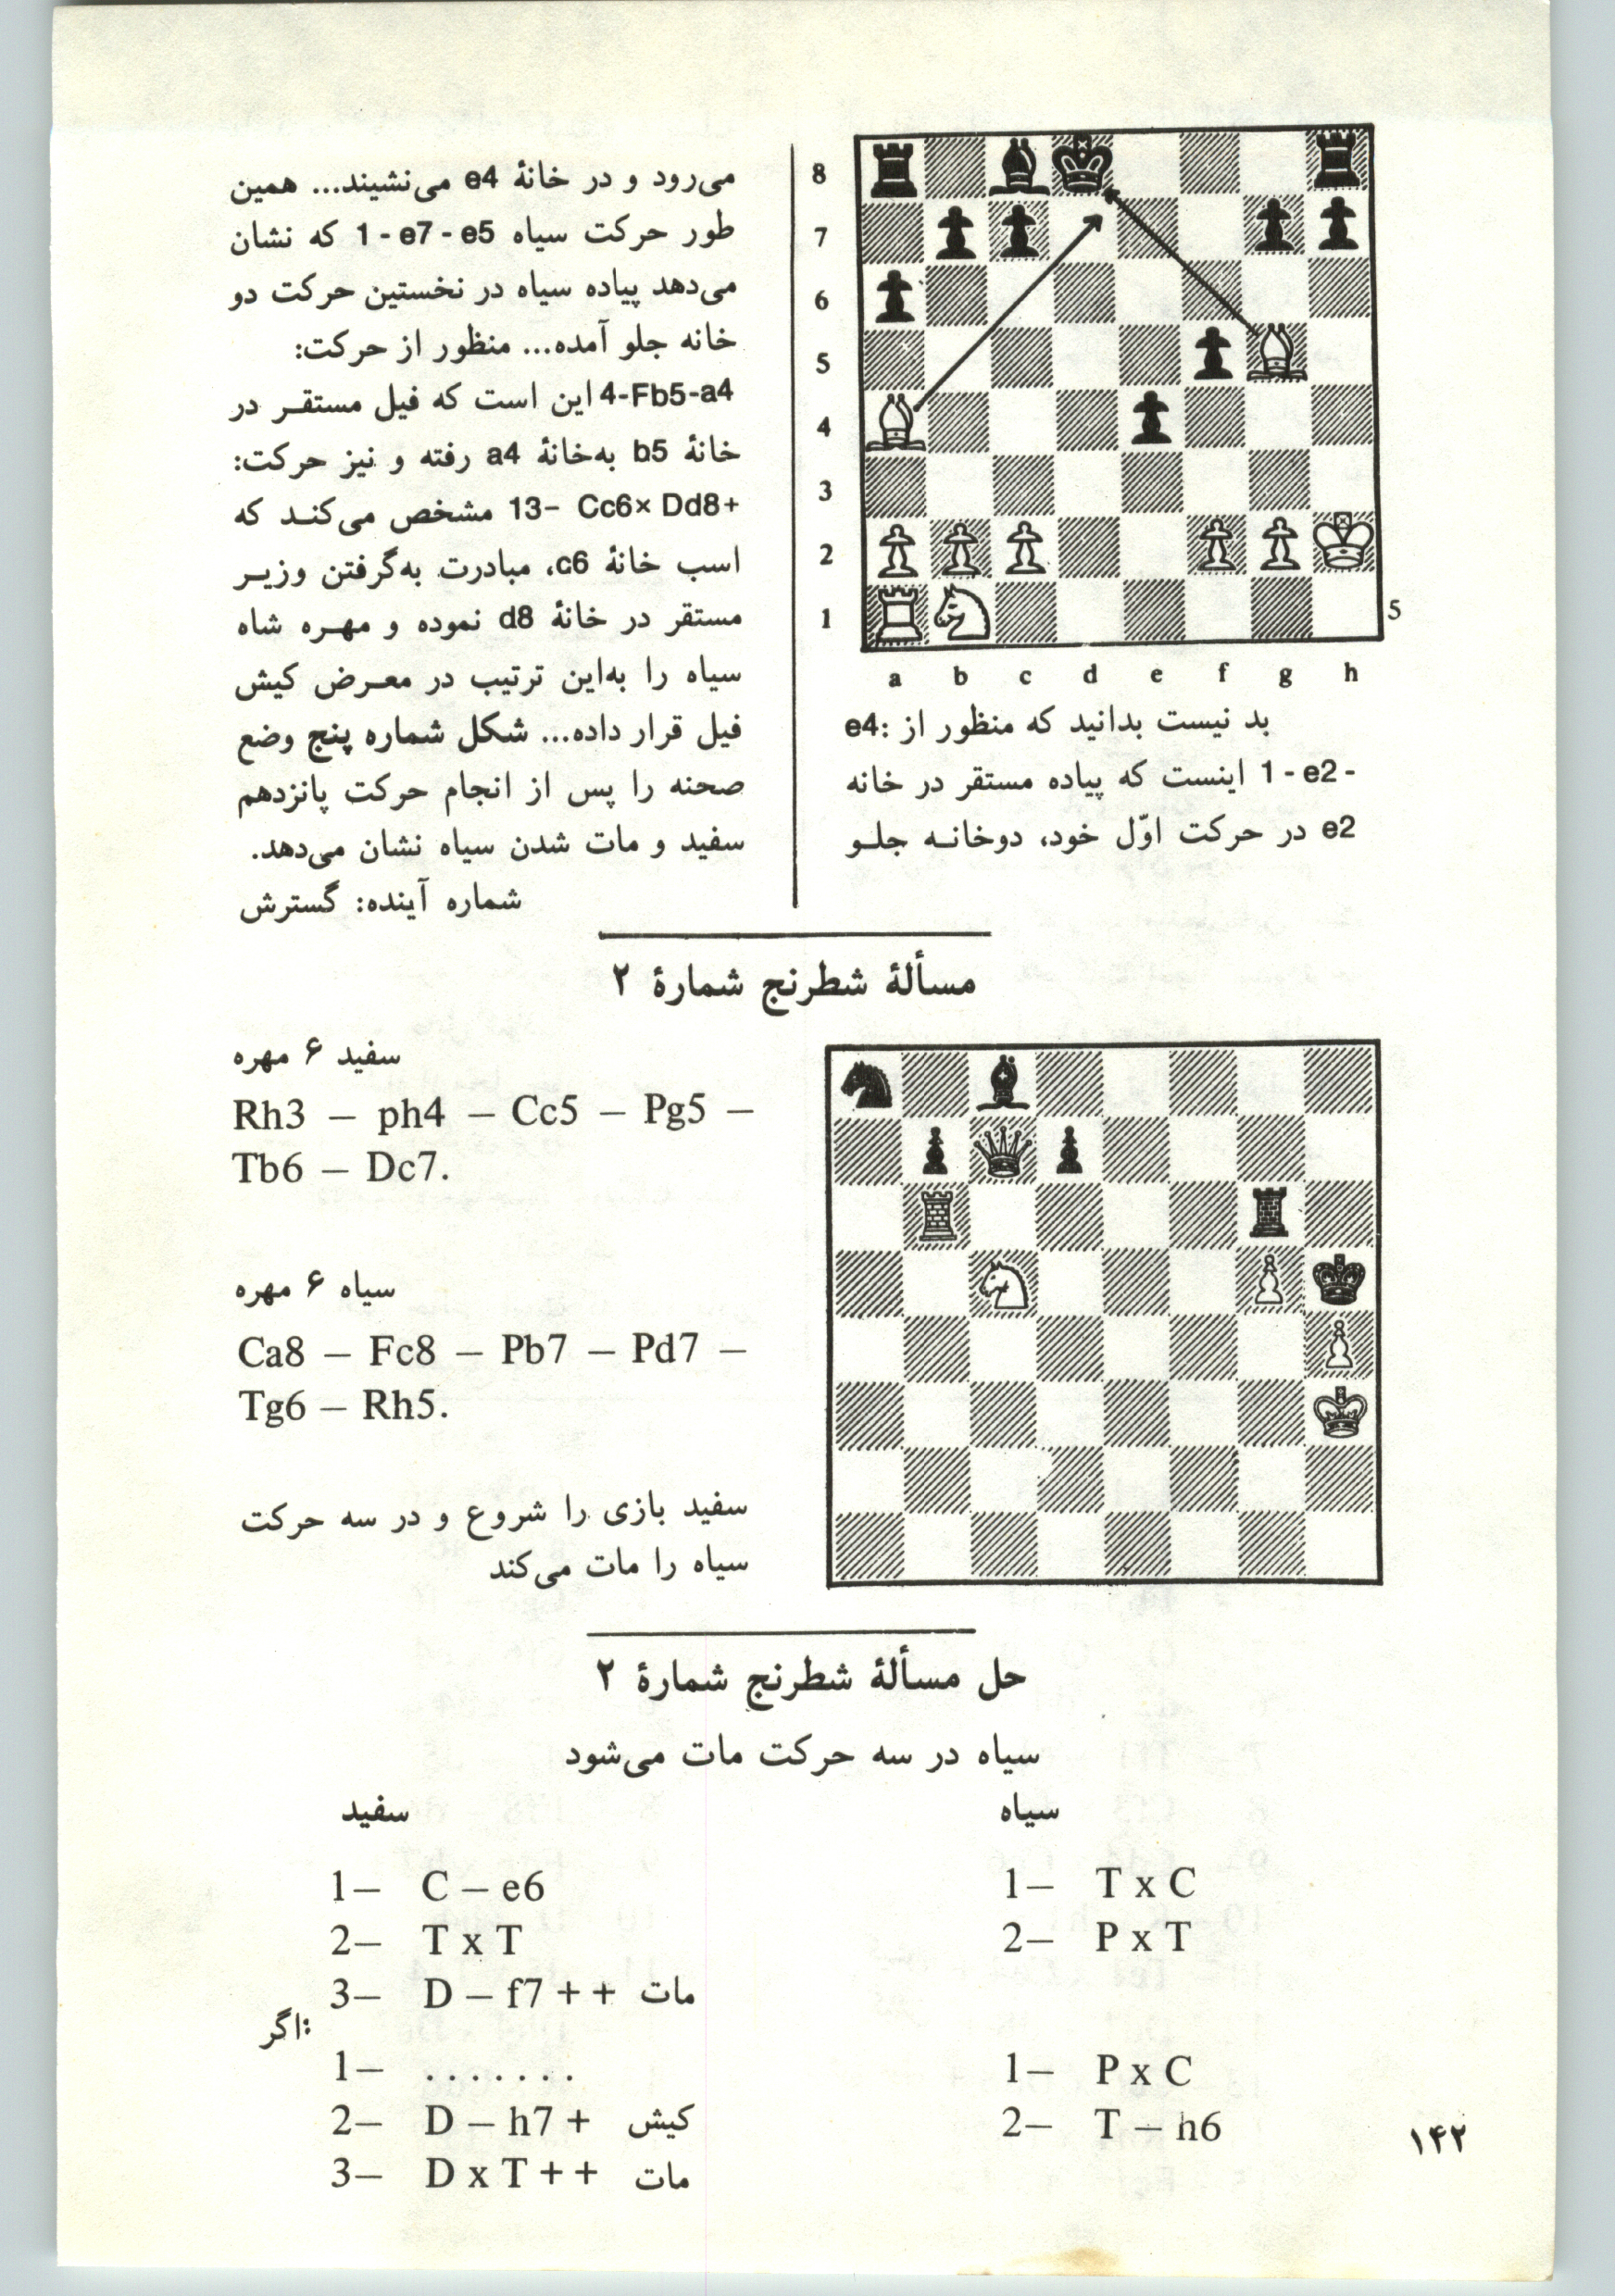 8
7
6
5
4
3
2
1
5
a b c d e f g h
بد نیست بدانید که منظور از :e4
1 - e2 - اینست که پیاده مستقر در خانه
e2 در حرکت اوّل خود، دوخانه جلو
می‌رود و در خانهٔ e4 می‌نشیند... همین
طور حرکت سیاه 1 - e7 - e5 که نشان
می‌دهد پیاده سیاه در نخستین حرکت دو
خانه جلو آمده... منظور از حرکت:
4-Fb5-a4 این است که فیل مستقر در
خانهٔ b5 به‌خانهٔ a4 رفته و نیز حرکت:
13- Cc6× Dd8+ مشخص می‌کند که
اسب خانهٔ c6، مبادرت به‌گرفتن وزیر
مستقر در خانهٔ d8 نموده و مهره شاه
سیاه را به‌این ترتیب در معرض کیش
فیل قرار داده... شکل شماره پنج وضع
صحنه را پس از انجام حرکت پانزدهم
سفید و مات شدن سیاه نشان می‌دهد.
شماره آینده: گسترش
مسألهٔ شطرنج شمارهٔ ۲
سفید ۶ مهره
Rh3 – ph4 – Cc5 – Pg5 –
Tb6 – Dc7.
سیاه ۶ مهره
Ca8 – Fc8 – Pb7 – Pd7 –
Tg6 – Rh5.
سفید بازی را شروع و در سه حرکت
سیاه را مات می‌کند
حل مسألهٔ شطرنج شمارهٔ ۲
سیاه در سه حرکت مات می‌شود
سفید سیاه
1– C – e6 1– T x C
2– T x T 2– P x T
3– D – f7 + + مات
اگر:
1– . . . . . . . 1– P x C
2– D – h7 + کیش 2– T – h6
3– D x T + + مات
۱۴۲